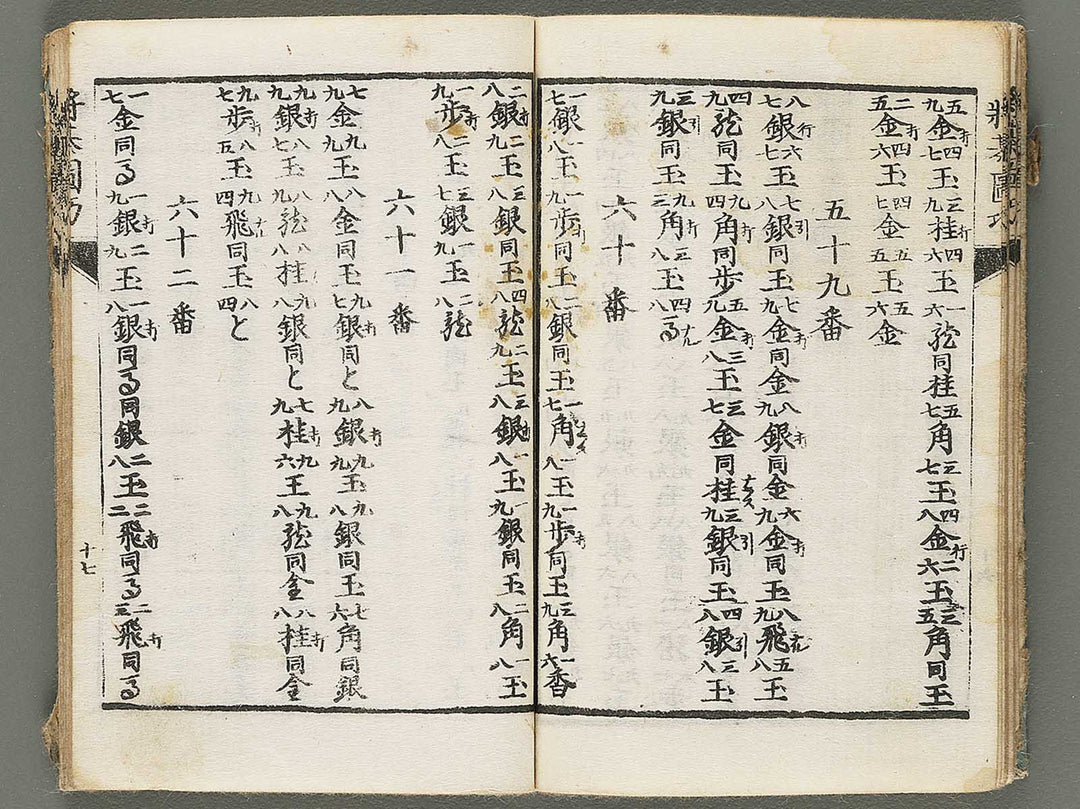 五九金打四七玉三九桂打四六玉一六龍同桂五七角三七玉四八金行二六玉三五角同玉
二五金打四六玉四七金五五玉五六金
五十九番
八七銀行六七玉七八銀引同玉七九金打同金八九銀打同金六九金打同玉八九飛なる五八玉
四九龍同玉九四角打同歩五九金打三八玉三七金同桂なる三九銀引同玉四八銀引三八玉
三九銀打同玉九三角打三八玉四八馬
六十番
一七銀一八玉一九歩打同玉二八銀同玉一七角なる一八玉一九歩打同玉三九角一六香
二八銀打二九玉三八銀同玉四八龍二九玉三八銀一八玉一九銀同玉二八角一八玉
一九歩打二八玉三七銀一七玉二八龍
六十一番
七九金九九玉八八金同玉九七銀打同と八九銀打九九玉九八銀同玉七六角同銀
九九銀打八七玉九八龍八八桂九八銀同と七九桂打九六王九八龍同金八八桂打同金
九七歩打八五玉九四飛なる同玉八四と
六十二番
一七金同馬一九銀打二九玉一八銀打同馬同銀二八玉二二飛打同馬二三飛打同馬
十七